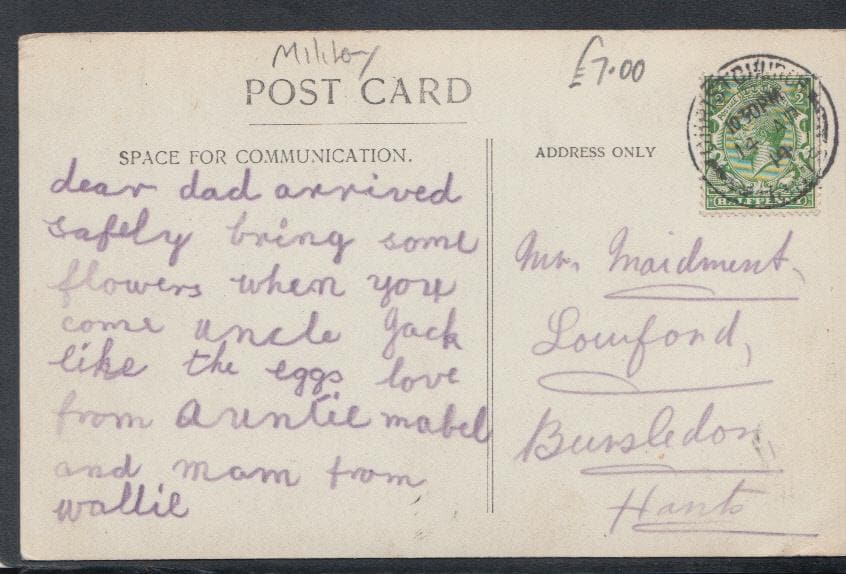 Military
£7.00
POST CARD
SPACE FOR COMMUNICATION.
dear dad arrived
safely bring some
flowers when you
come uncle Jack
like the eggs love
from Auntie mabel
and mam from
wallie
ADDRESS ONLY
CHRISTCHURCH
10.30 PM
14 AP
14
HALFPENNY
Mr. Maidment,
Lowford,
Bursledon,
Hants